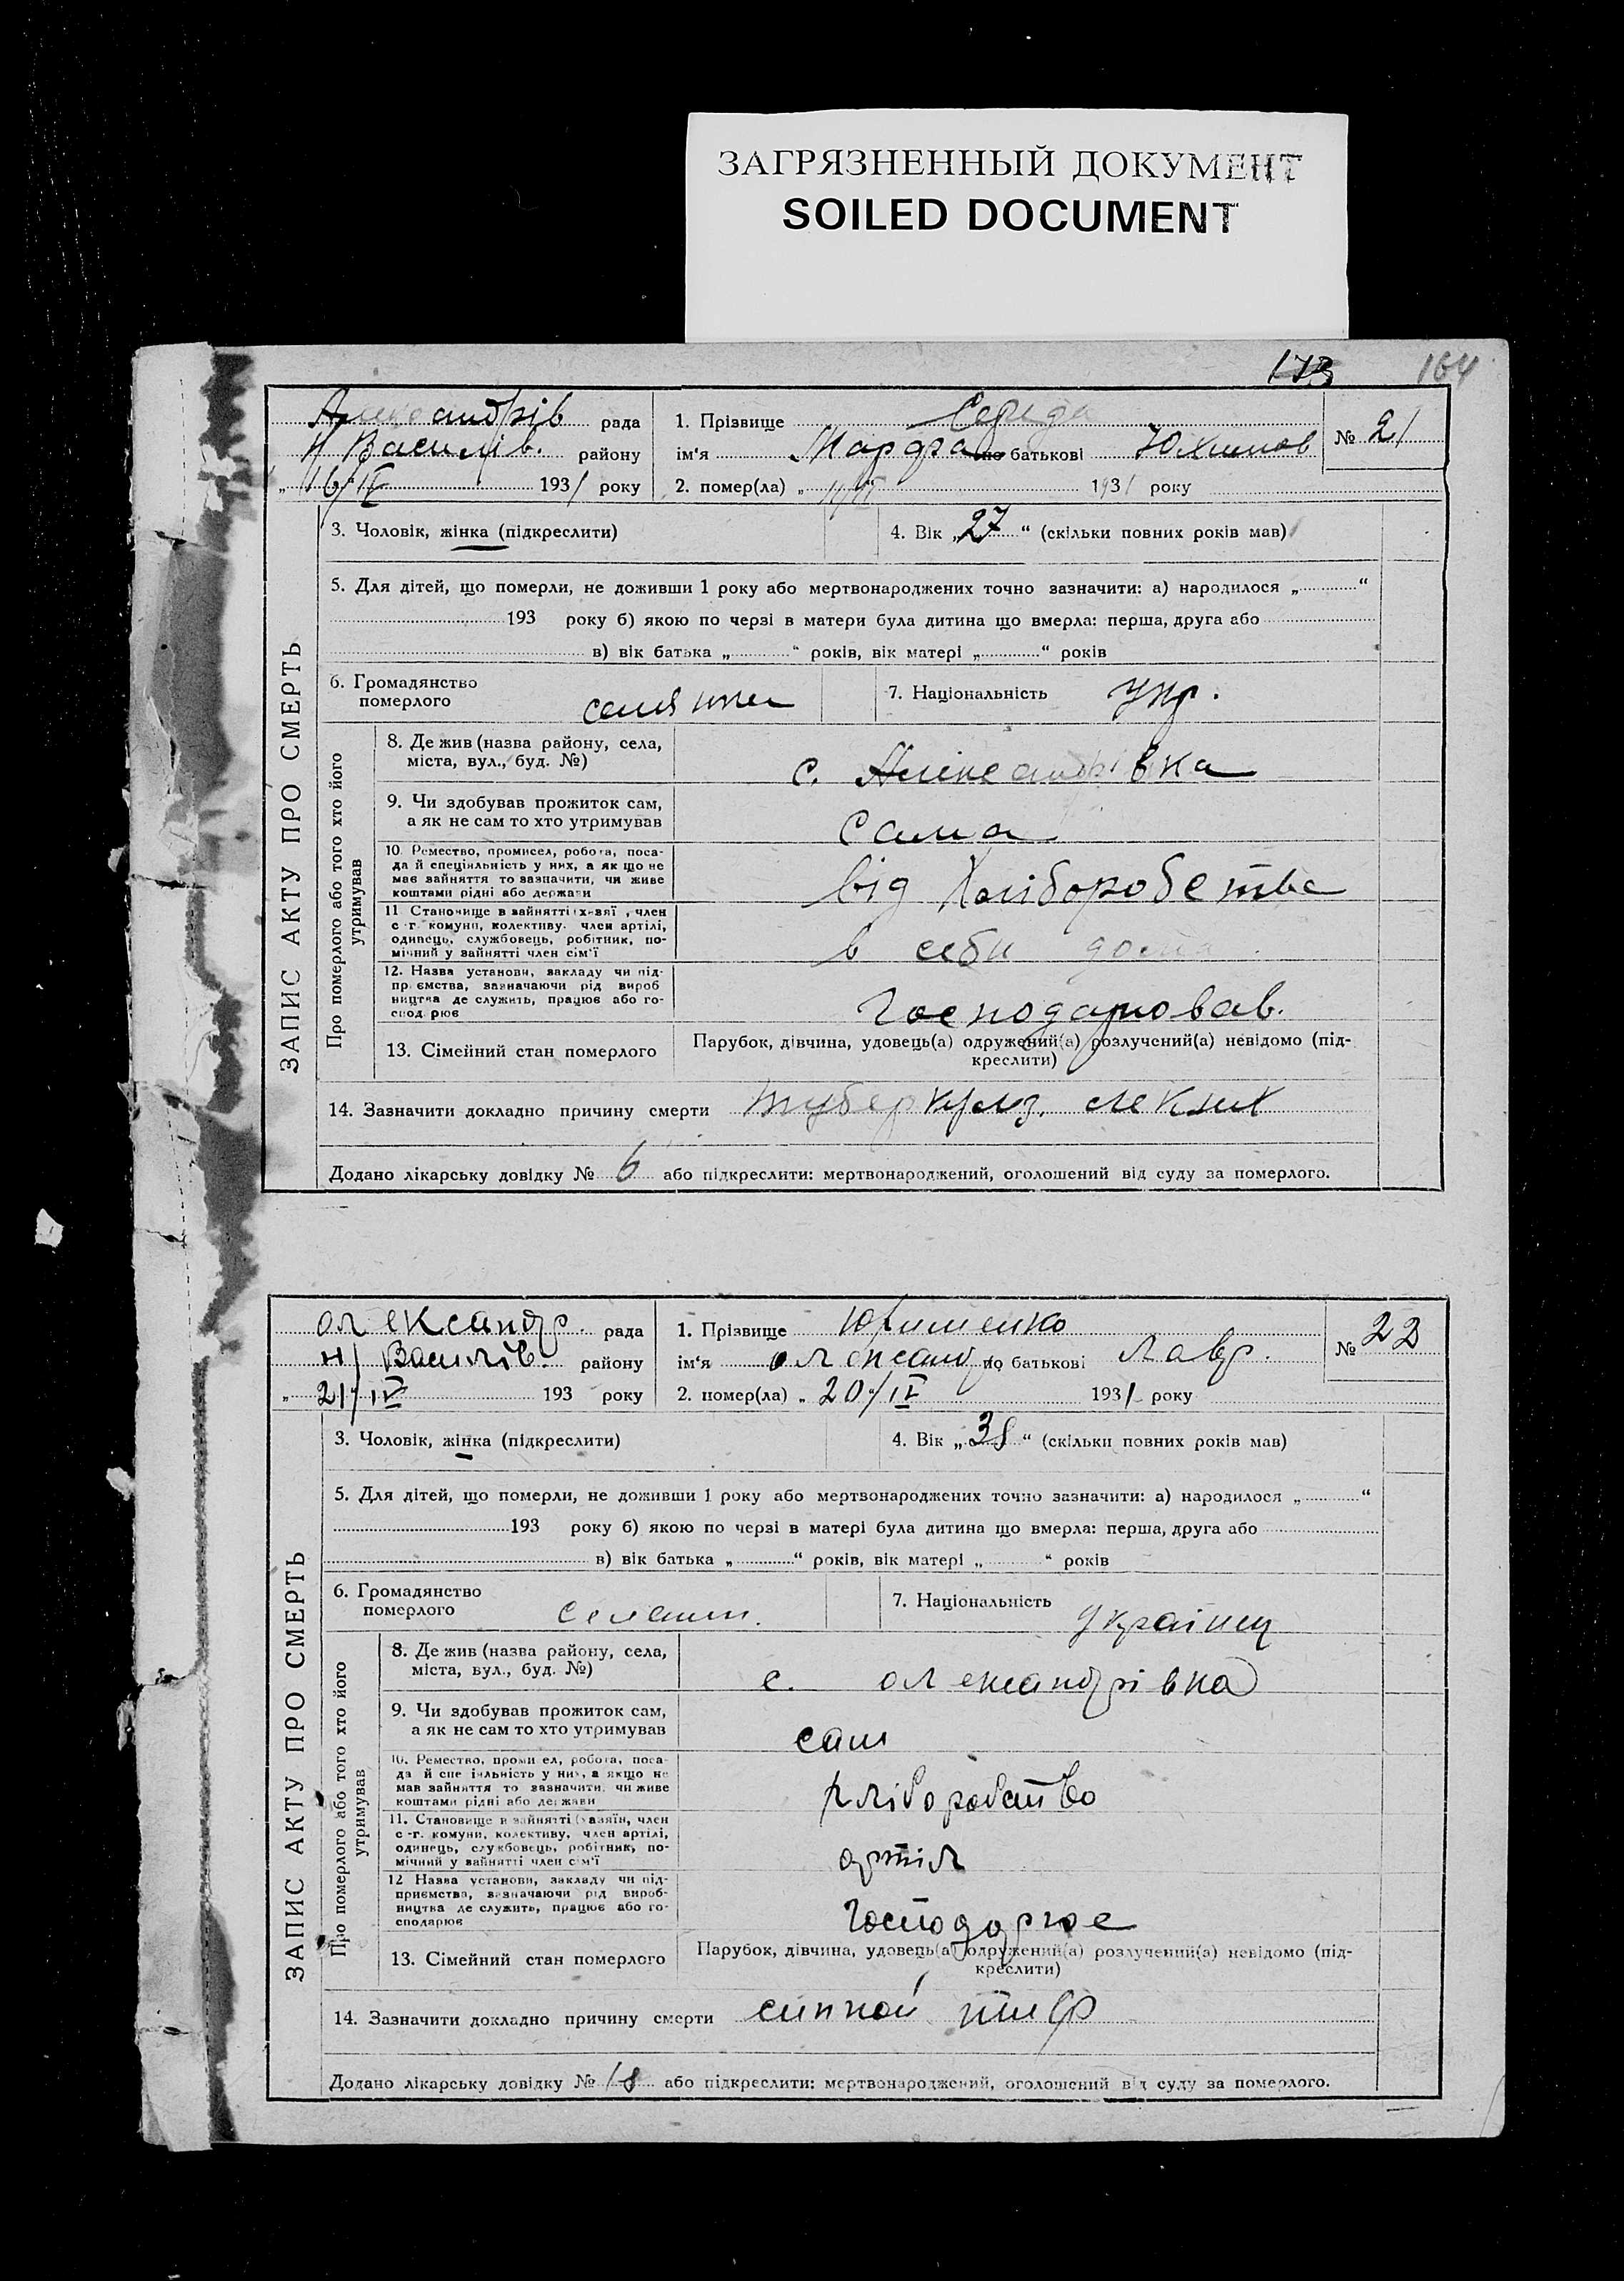 ЗАГРЯЗНЕННЫЙ ДОКУМЕНТ
SOILED DOCUMENT
173 164
Александрів рада
Н Василів. району
„16/IV 1931 року
1. Прізвище Середа
ім'я Марфа по батькові Юхимов
2. помер(ла) „ 1931 року
№ 21
3. Чоловік, жінка (підкреслити) 4. Вік „27“ (скільки повних років мав)
5. Для дітей, що померли, не доживши 1 року або мертвонароджених точно зазначити: а) народилося „ “
193 року б) якою по черзі в матери була дитина що вмерла: перша, друга або
в) вік батька „ “ років, вік матері „ “ років
6. Громадянство померлого селянка 7. Національність Укр.
ЗАПИС АКТУ ПРО СМЕРТЬ
Про померлого або того хто його утримував
8. Де жив (назва району, села,
міста, вул., буд. №) с. Александрівка
9. Чи здобував прожиток сам,
а як не сам то хто утримував Сама
10. Ремество, промисел, робота, поса-
да й спеціяльність у них, а як що не
має зайняття то зазначити, чи живе
коштами рідні або держави від Хліборобства
11 Становище в зайнятті (х-зяї , член
с-г. комуни, колективу. член артілі,
одинець, службовець, робітник, по-
мічний у зайнятті член сім'ї в себи дома
12. Назва установи, закладу чи під-
пр.ємства, зазначаючи рід вироб
ництва де служить, працює або го-
спод.рює Господарював.
13. Сімейний стан померлого Парубок, дівчина, удовець(а) одружений(а) розлучений(а) невідомо (під-
креслити)
14. Зазначити докладно причину смерти туберкульз. лекких
Додано лікарську довідку № 6 або підкреслити: мертвонароджений, оголошений від суду за померлого.
Олександр. рада
Н/Василів. району
„21/IV 193 року
1. Прізвище
ім'я Олександ по батькові Лавр.
2. помер(ла) „20“/IV 1931 року
№ 22
3. Чоловік, жінка (підкреслити) 4. Вік „38“ (скільки повних років мав)
5. Для дітей, що померли, не доживши 1 року або мертвонароджених точно зазначити: а) народилося „ “
193 року б) якою по черзі в матері була дитина що вмерла: перша, друга або
в) вік батька „ “ років, вік матері „ “ років
6. Громадянство померлого селянин. 7. Національність Українец
ЗАПИС АКТУ ПРО СМЕРТЬ
Про померлого або того хто його утримував
8. Де жив (назва району, села,
міста, вул., буд. №) с. Олександрівка
9. Чи здобував прожиток сам,
а як не сам то хто утримував сам
10. Ремество, промисел, робота, поса-
да й спеціяльність у них, а якщо не
мав зайняття то зазначити, чи живе
коштами рідні або держави хліборобство
11. Становище в зайнятті (хазяїн, член
с-г. комуни, колективу, член артілі,
одинець, службовець, робітник, по-
мічний у зайнятті член сім'ї артіл
12 Назва установи, закладу чи під-
приємства, зазначаючи рід вироб-
ництва де служить, працює або го-
сподарює Господарює
13. Сімейний стан померлого Парубок, дівчина, удовець(а) одружений(а) розлучений(а) невідомо (під-
креслити)
14. Зазначити докладно причину смерти сипной тиф
Додано лікарську довідку № 18 або підкреслити: мертвонароджений, оголошений від суду за померлого.